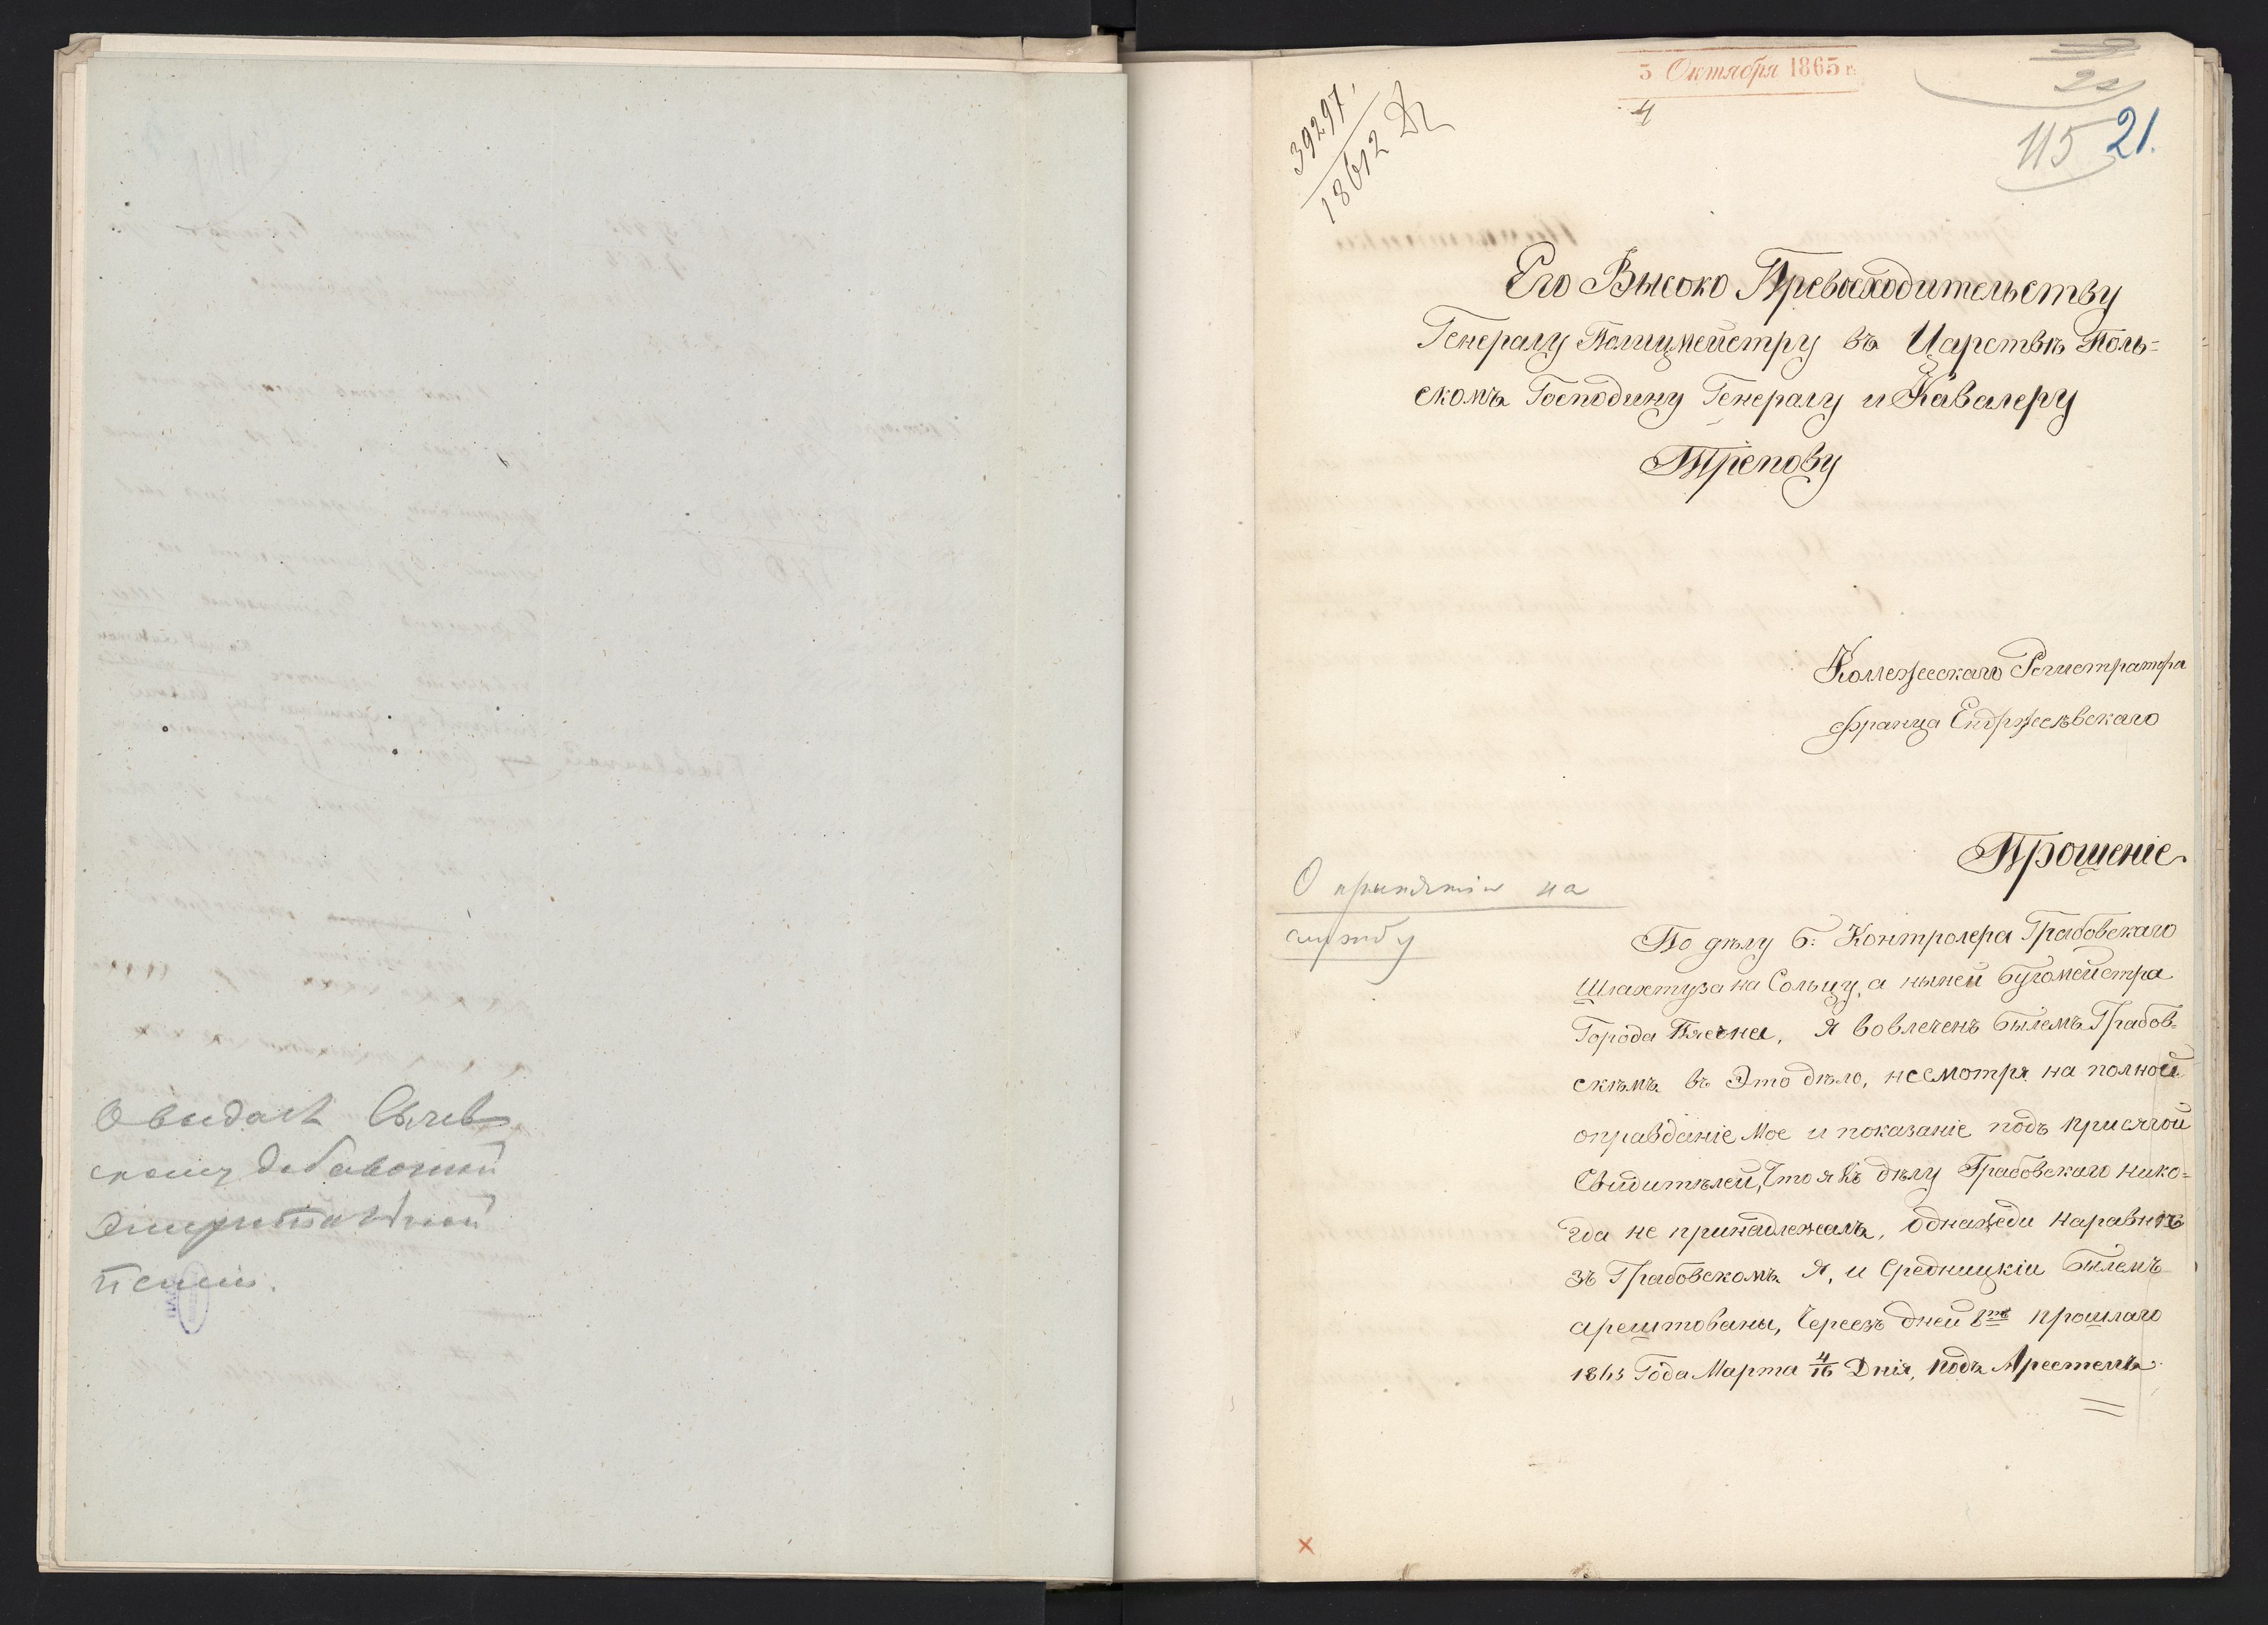 О выдачѣ Сычев
скому добавочной
Эмеритальной
пенсіи.
5 Октября 1865 г.
4
39297.
18612
22
115 21.
Его Высоко Превосходительству
Генералу Полицмейстру въ Царствѣ Поль=
скомъ Господину Генералу и Кавалеру
Трепову
Коллежескаго Регистратора
Франца Ендржеѣвскаго
Прошеніе.
О принятіи на
службу
По дѣлу б: Контролера Грабовскаго
Шлахтуза на Сольцу, а ныней бугомейстра
Города Пясечна, я вовлеченъ былемъ Грабов=
скѣмъ въ Это дѣло, несмотря на полной
оправданіе Мое и показаніе подъ присягой
Свидитѣлей, Что я къ дѣлу Грабовскаго нико=
гда не принадлежалъ, однажеди наравнѣ
зъ Грабовскомъ Я, и Средницкіи былемъ
арештованы, Череезъ дней 8мъ прошлаго
1865 Года Марта 4/16 Днія, подъ Арестемъ